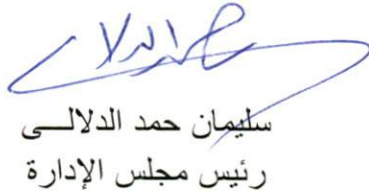 سليمان حمد الدلالـــى
رئيس مجلس الإدارة